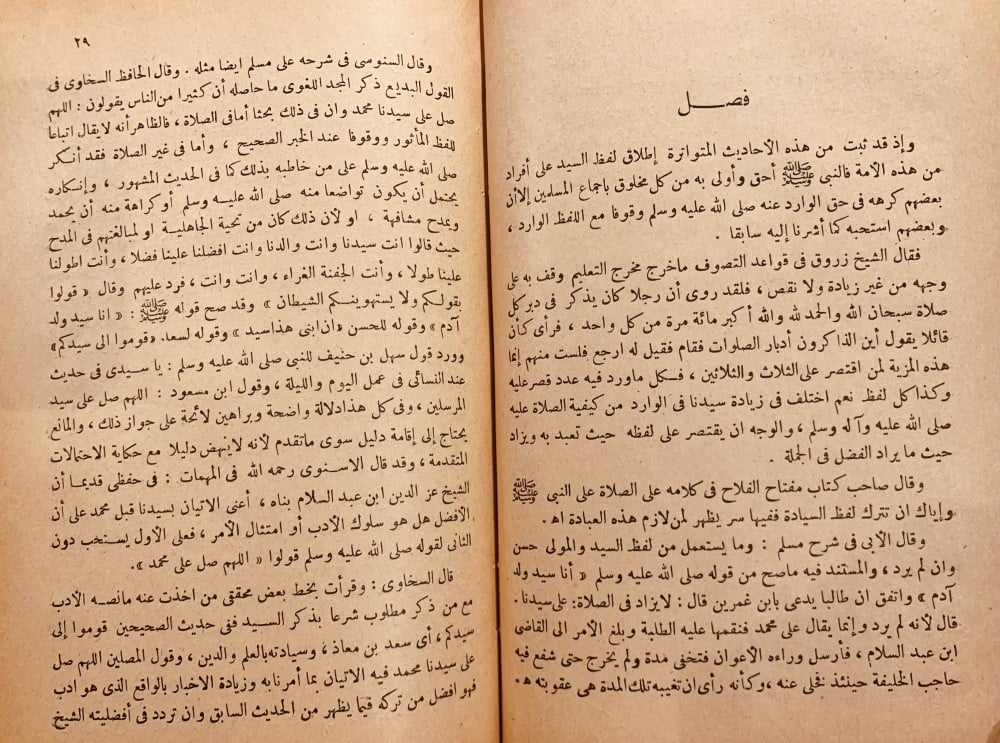 فصل
وإذ قد ثبت من هذه الأحاديث المتواترة إطلاق لفظ السيد على أفراد
من هذه الأمة فالنبي ﷺ أحق وأولى به من كل مخلوق باجماع المسلمين إلا أن
بعضهم كرهه في حق الوارد عنه صلى الله عليه وسلم وقوفا مع اللفظ الوارد ،
وبعضهم استحبه كما أشرنا إليه سابقا .
فقال الشيخ زروق في قواعد التصوف ماخرج مخرج التعليم وقف به على
وجهه من غير زيادة ولا نقص ، فلقد روى أن رجلا كان يذكر في دبر كل
صلاة سبحان الله والحمد لله والله أكبر مائة مرة من كل واحد ، فرأى كأن
قائلا يقول أين الذاكرون أدبار الصلوات فقام فقيل له ارجع فلست منهم إنما
هذه المزية لمن اقتصر على الثلاث والثلاثين ، فسكل ماورد فيه عدد قصر عليه
وكذا كل لفظ نعم اختلف في زيادة سيدنا في الوارد من كيفية الصلاة عليه
صلى الله عليه وآله وسلم ، والوجه ان يقتصر على لفظه حيث تعبد به ويزاد
حيث ما يراد الفضل في الجملة .
وقال صاحب كتاب مفتاح الفلاح في كلامه على الصلاة على النبي ﷺ
وإياك ان تترك لفظ السيادة ففيها سر يظهر لمن لازم هذه العبادة اه .
وقال الأبى في شرح مسلم : وما يستعمل من لفظ السيد والمولى حسن
وان لم يرد ، والمستند فيه ماصح من قوله صلى الله عليه وسلم « أنا سيد ولد
آدم » واتفق ان طالبا يدعى بابن غمرين قال : لايزاد في الصلاة : على سيدنا .
قال لأنه لم يرد وإنما يقال على محمد فنقمها عليه الطلبة وبلغ الأمر الى القاضي
ابن عبد السلام ، فأرسل وراءه الأعوان فتخفى مدة ولم يخرج حتى شفع فيه
حاجب الخليفة حينئذ فخلى عنه ، وكأنه رأى ان تغيبه تلك المدة هى عقوبته اه
٢٩
وقال السنوسى فى شرحه على مسلم ايضا مثله . وقال الحافظ السخاوى فى
القول البديع ذكر المجد اللغوى ما حاصله أن كثيرا من الناس يقولون : اللهم
صل على سيدنا محمد وان فى ذلك بحثا أما فى الصلاة ، فالظاهر أنه لا يقال اتباعا
للفظ المأثور ووقوفا عند الخبر الصحيح ، وأما فى غير الصلاة فقد أنكر
صلى الله عليه وسلم على من خاطبه بذلك كما فى الحديث المشهور ، وإنكاره
يحتمل أن يكون تواضعا منه صلى الله عليه وسلم أو كراهة منه أن يحمد
ويمدح مشافهة ، او لأن ذلك كان من تحية الجاهلية او لمبالغتهم فى المدح
حيث قالوا انت سيدنا وانت والدنا وانت افضلنا علينا فضلا ، وأنت اطولنا
علينا طولا ، وأنت الجفنة الغراء ، وانت وانت ، فرد عليهم وقال « قولوا
بقولكم ولا يستهوينكم الشيطان » وقد صح قوله ﷺ : « انا سيد ولد
آدم » وقوله للحسن « ان ابنى هذا سيد » وقوله لسعد . « قوموا الى سيدكم »
وورد قول سهل بن حنيف للنبى صلى الله عليه وسلم : يا سيدى فى حديث
عند النسائى فى عمل اليوم والليلة ، وقول ابن مسعود : اللهم صل على سيد
المرسلين ، وفى كل هذا دلالة واضحة وبراهين لائحة على جواز ذلك ، والمانع
يحتاج إلى إقامة دليل سوى ماتقدم لأنه لاينهض دليلا مع حكاية الاحتمالات
المتقدمة ، وقد قال الاسنوى رحمه الله فى المهمات : فى حفظى قديما أن
الشيخ عز الدين ابن عبد السلام بناه ، أعنى الاتيان بسيدنا قبل محمد على أن
الأفضل هل هو سلوك الأدب أو امتثال الأمر ، فعلى الأول يستحب دون
الثانى لقوله صلى الله عليه وسلم قولوا « اللهم صل على محمد » .
قال السخاوى : وقرأت بخط بعض محققى من اخذت عنه مانصه الأدب
مع من ذكر مطلوب شرعا بذكر السيد ففى حديث الصحيحين قوموا إلى
سيدكم ، أى سعد بن معاذ ، وسيادته بالعلم والدين ، وقول المصلين اللهم صل
على سيدنا محمد فيه الاتيان بما أمرنا به وزيادة الاخبار بالواقع الذى هو ادب
فهو افضل من تركه فيما يظهر من الحديث السابق وان تردد فى أفضليته الشيخ